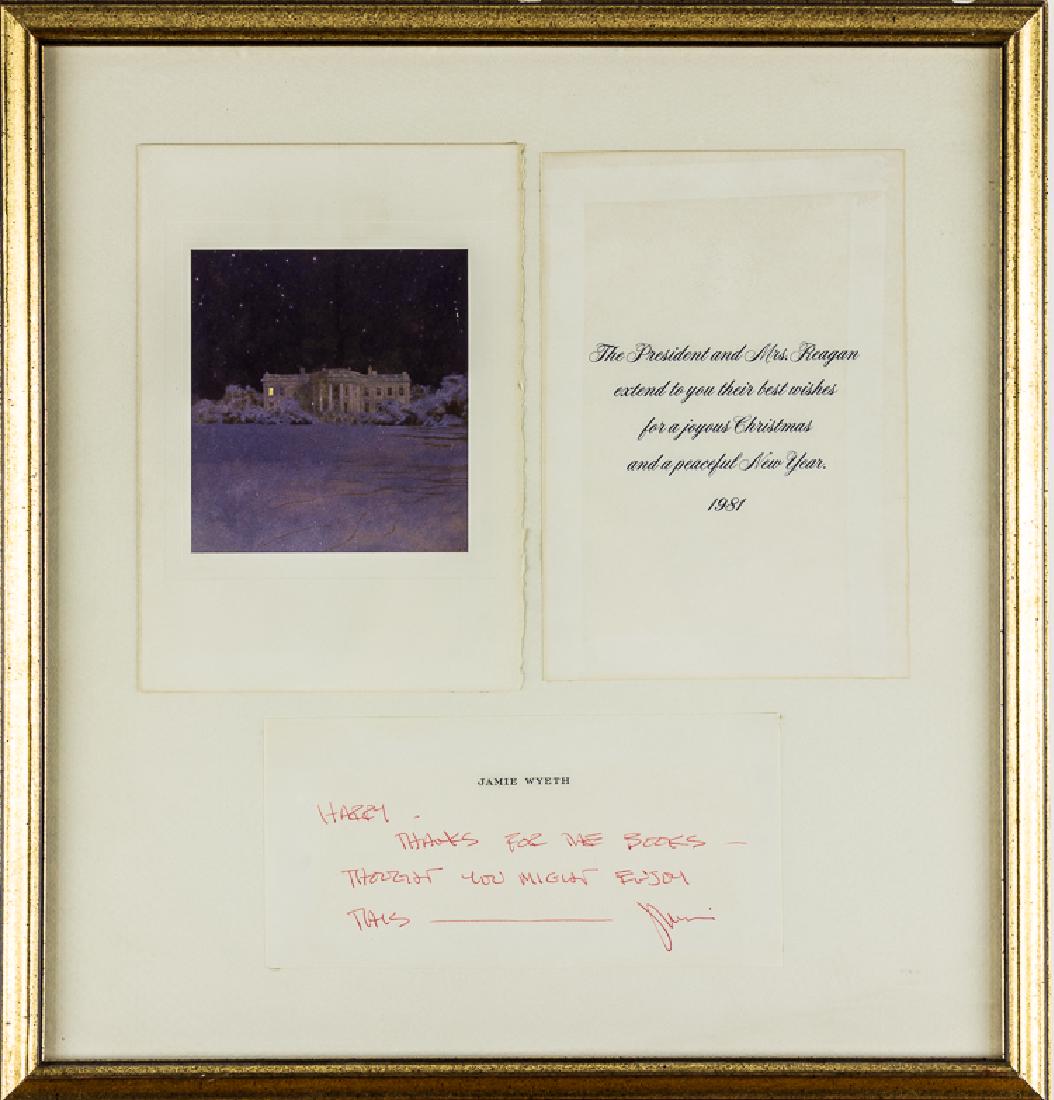 The President and Mrs. Reagan
extend to you their best wishes
for a joyous Christmas
and a peaceful New Year.
1981
JAMIE WYETH
HARRY -
THANKS FOR THE BOOKS —
THOUGHT YOU MIGHT ENJOY
THIS ——— Jamie